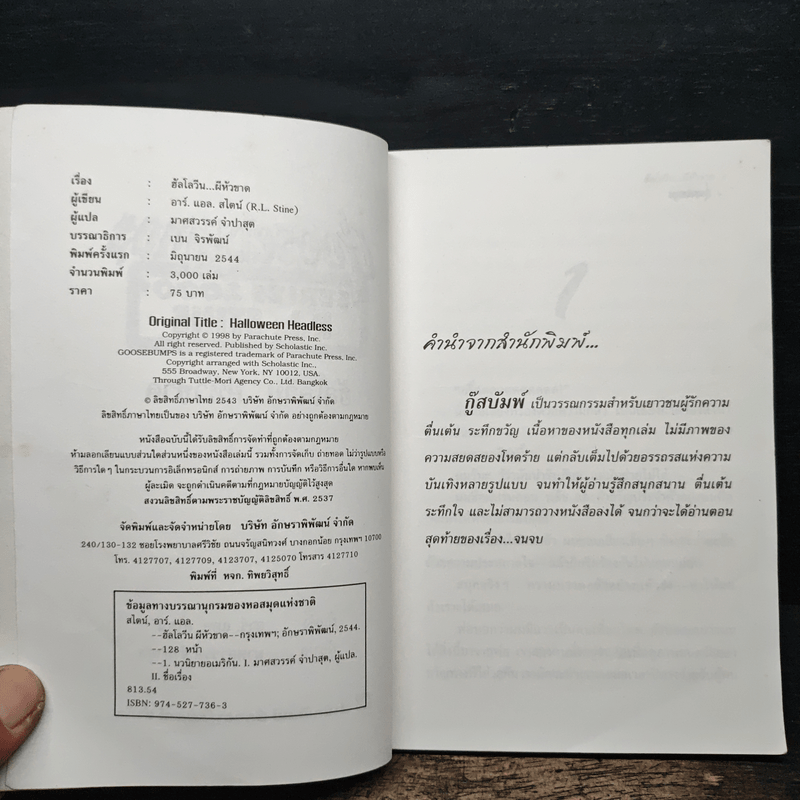 เรื่อง : ฮัลโลวีน...ผีหัวขาด
ผู้เขียน : อาร์. แอล. สไตน์ (R.L. Stine)
ผู้แปล : มาศสวรรค์ จำปาสุต
บรรณาธิการ : เบน จิรพัฒน์
พิมพ์ครั้งแรก : มิถุนายน 2544
จำนวนพิมพ์ : 3,000 เล่ม
ราคา : 75 บาท
Original Title : Halloween Headless
Copyright © 1998 by Parachute Press, Inc.
All right reserved. Published by Scholastic Inc.
GOOSEBUMPS is a registered trademark of Parachute Press, Inc.
Copyright arranged with Scholastic Inc.,
555 Broadway, New York, NY 10012, USA.
Through Tuttle-Mori Agency Co., Ltd. Bangkok
© ลิขสิทธิ์ภาษาไทย 2543 บริษัท อักษราพิพัฒน์ จำกัด
ลิขสิทธิ์ภาษาไทยเป็นของ บริษัท อักษราพิพัฒน์ จำกัด อย่างถูกต้องตามกฎหมาย
หนังสือฉบับนี้ได้รับลิขสิทธิ์การจัดทำที่ถูกต้องตามกฎหมาย
ห้ามลอกเลียนแบบส่วนใดส่วนหนึ่งของหนังสือเล่มนี้ รวมทั้งการจัดเก็บ ถ่ายทอด ไม่ว่ารูปแบบหรือ
วิธีการใด ๆ ในกระบวนการอิเล็กทรอนิกส์ การถ่ายภาพ การบันทึก หรือวิธีการอื่นใด หากพบเห็น
ผู้ละเมิด จะถูกดำเนินคดีตามที่กฎหมายบัญญัติไว้สูงสุด
สงวนลิขสิทธิ์ตามพระราชบัญญัติลิขสิทธิ์ พ.ศ. 2537
จัดพิมพ์และจัดจำหน่ายโดย บริษัท อักษราพิพัฒน์ จำกัด
240/130-132 ซอยโรงพยาบาลศรีวิชัย ถนนจรัญสนิทวงศ์ บางกอกน้อย กรุงเทพฯ 10700
โทร. 4127707, 4127709, 4123707, 4125070 โทรสาร 4127710
พิมพ์ที่ หจก. ทิพยวิสุทธิ์
ข้อมูลทางบรรณานุกรมของหอสมุดแห่งชาติ
สไตน์, อาร์. แอล.
--ฮัลโลวีน ผีหัวขาด--กรุงเทพฯ; อักษราพิพัฒน์, 2544.
--128 หน้า
--1. นวนิยายอเมริกัน. I. มาศสวรรค์ จำปาสุต, ผู้แปล.
II. ชื่อเรื่อง
813.54
ISBN: 974-527-736-3
คำนำจากสำนักพิมพ์...
กู๊สบัมพ์ เป็นวรรณกรรมสำหรับเยาวชนผู้รักความ
ตื่นเต้น ระทึกขวัญ เนื้อหาของหนังสือทุกเล่ม ไม่มีภาพของ
ความสยดสยองโหดร้าย แต่กลับเต็มไปด้วยอรรถรสแห่งความ
บันเทิงหลายรูปแบบ จนทำให้ผู้อ่านรู้สึกสนุกสนาน ตื่นเต้น
ระทึกใจ และไม่สามารถวางหนังสือลงได้ จนกว่าจะได้อ่านตอน
สุดท้ายของเรื่อง...จนจบ